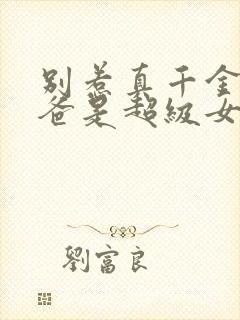 别惹真千金
爸是超级女
劉富良